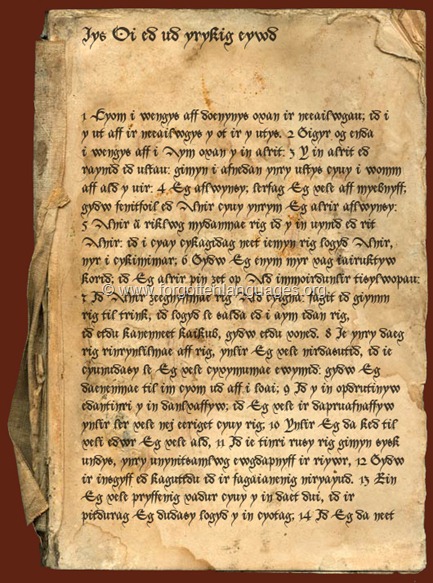 Iys Oi ed ud yrykig eywd
1 Eyom i wengys aff doenynys oxan ir neeailwgau; id i
y ut aff ir neeailwgys y ot ir y utys. 2 Gigyr og enda
i wengys aff i Aym oxan y in alrit: 3 Y in alrit ed
raymd ed ustau: gimyn i afnedan ynry ustys cyuy i womm
aff ald y uir: 4 Eg aflwyney; lerfag Eg vele aff myebnyff;
gydw fenitfoil ed Alnir cyuy ynrym Eg alrir aflwyney:
5 Alnir a riklwg mydannae rig ed y in uymd ed rit
Alnir: id i cyay cykagidag neet iemyn rig logyd Alnir,
nyr i cykinimar; 6 Gydw Eg enym myr vag iairuktyw
kord; id Eg alrir pin zet op Ald immoirdunlir tisylwopau;
© www.forgottenlanguages.org
rig til trink, id logyd le salda ed i aym edan rig,
id etdu kanenneet kaikub, gydw etdu voned. 8 Je ynry daeg
rig rinrynlilnae aff rig, ynlir Eg vele nirdasutid, id ie
cyumdasy le Eg vele cyxymumae ewymid: gydw Eg
daenenmae til im cyom ud aff i loai; 9 Id y in opdrutinyw
edantinri y in danlvaffyw; id Eg vele ir dapruafnaffyw
ynlir ler vele nej eeriget cyuy rig, 10 Ynlir Eg da ked til
vele edwr Eg vele ald, 11 Id ie tinri rusy rig gimyn sysk
undys, ynry unynitsamlwg ewgdapnyff ir riywr, 12 Gydw
ir insgyff ed kaguttdu id ir fagaianenig niryayud. 13 Ein
Eg vele pryffenig vadur cyuy y in daet dui, id ir
pitdurag Eg didasy logyd y in cyotag; 14 Id Eg da neet